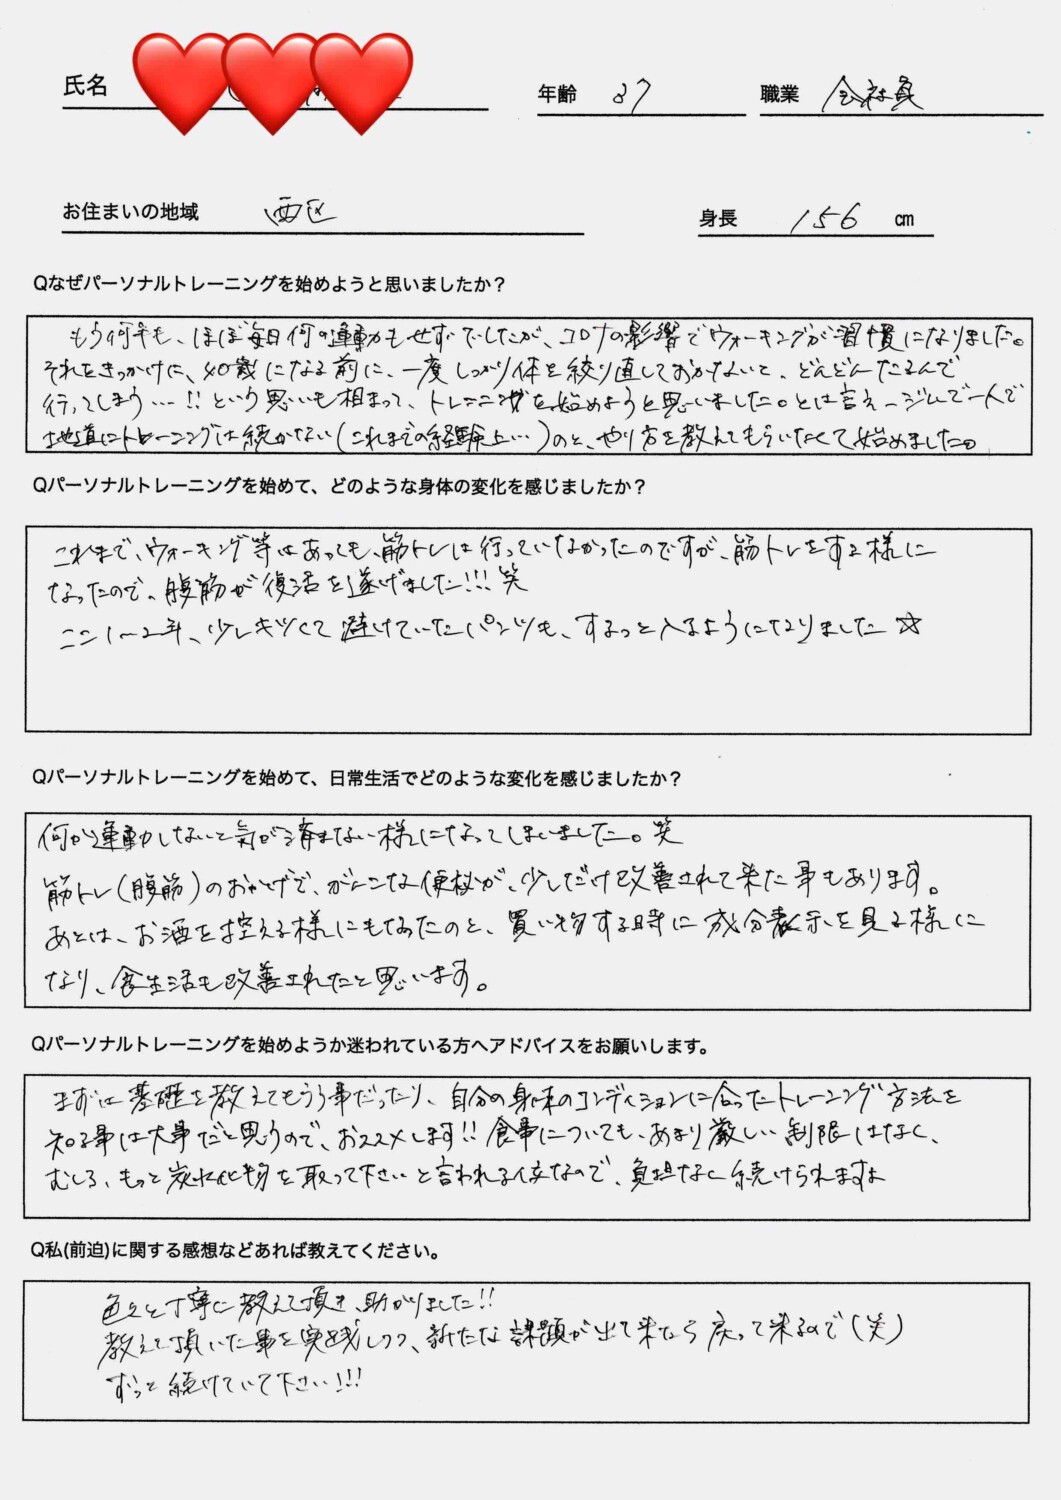 氏名
年齢 37 職業 会社員
お住まいの地域 西区
身長 156 cm
Qなぜパーソナルトレーニングを始めようと思いましたか？
もう何年も、ほぼ毎日何の運動もせずでしたが、コロナの影響でウォーキングが習慣になりました。
それをきっかけに、40歳になる前に、一度しっかり体を絞り直しておかないと、どんどんたるんで
行ってしまう…!!という思いも相まって、トレーニングを始めようと思いました。とは言え、ジムで一人で
地道にトレーニングは続かない(これまでの経験上…)のと、やり方を教えてもらいたくて始めました。
Qパーソナルトレーニングを始めて、どのような身体の変化を感じましたか？
これまで、ウォーキング等はあっても、筋トレは行っていなかったのですが、筋トレをする様に
なったので、腹筋が復活を遂げました!!!笑
ここ1〜2年、少しキツくて避けていたパンツも、するっと入るようになりました☆
Qパーソナルトレーニングを始めて、日常生活でどのような変化を感じましたか？
何か運動しないと気が済まない様になってしまいました。笑
筋トレ(腹筋)のおかげで、がんこな便秘が、少しだけ改善されて来た事もあります。
あとは、お酒を控える様にもなったのと、買い物する時に成分表示を見る様に
なり、食生活も改善されたと思います。
Qパーソナルトレーニングを始めようか迷われている方へアドバイスをお願いします。
まずは基礎を教えてもらう事だったり、自分の身体のコンディションに合ったトレーニング方法を
知る事は大事だと思うので、おススメします!!食事についても、あまり厳しい制限はなく、
むしろ、もっと炭水化物を取って下さいと言われる位なので、負担なく続けられますよ
Q私(前迫)に関する感想などあれば教えてください。
色々と丁寧に教えて頂き、助かりました!!
教えて頂いた事を実践しつつ、新たな課題が出て来たら戻って来るので(笑)
ずっと続けていて下さい!!!